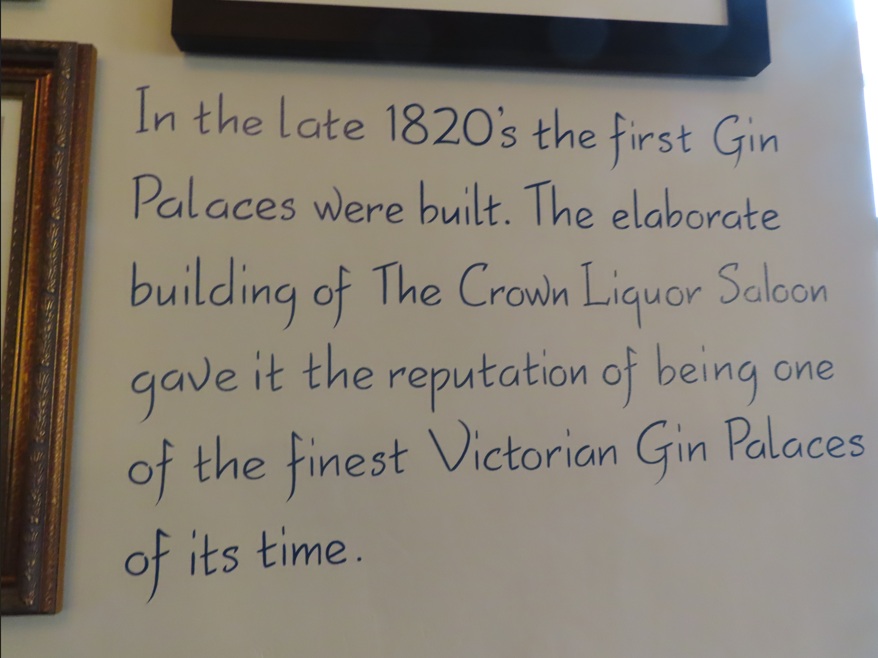 In the late 1820's the first Gin
Palaces were built. The elaborate
building of The Crown Liquor Saloon
gave it the reputation of being one
of the finest Victorian Gin Palaces
of its time.